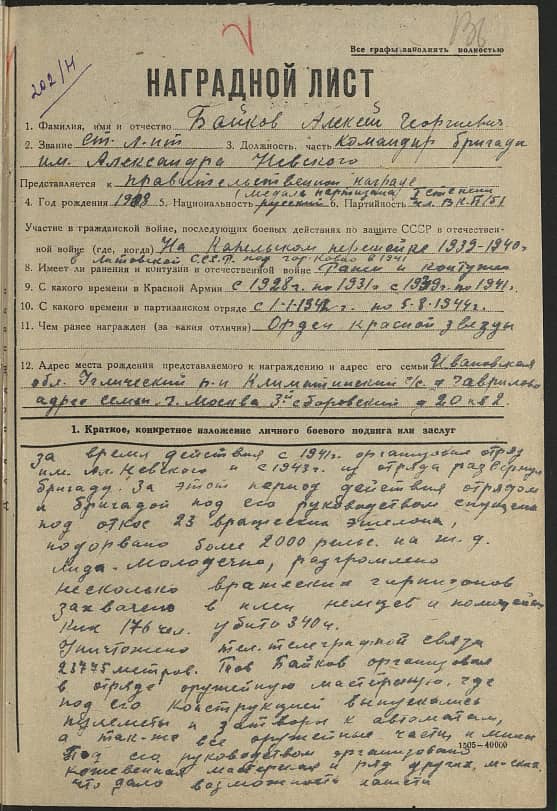 Все графы заполнять полностью
202/н
НАГРАДНОЙ ЛИСТ
1. Фамилия, имя и отчество Байков Алексей Георгиевич
2. Звание ст. л-нт 3. Должность, часть Командир бригады
им. Александра Невского
Представляется к правительственной награде
(медаль партизана I степени)
4. Год рождения 5. Национальность русский 6. Партийность чл. ВКП(б)
Участие в гражданской войне, последующих боевых действиях по защите СССР в отечествен-
ной войне (где, когда) На Карельском перешейке 1939-1940г
в Литовской С.С.Р. под гор. Ковно в 1941
8. Имеет ли ранения и контузии в отечественной войне Ранен и контужен
9. С какого времени в Красной Армии с 1928г. по 1931г с 1939г. по 1941г.
10. С какого времени в партизанском отряде с 1-1-1942г. по 5.8.1944г.
11. Чем ранее награжден (за какия отличия) Орден Красной звезды
12. Адрес места рождения представляемого к награждению и адрес его семьи Ивановская
обл. Угличский р-н Климатинский с/с. д. Гаврилово
адрес семьи г. Москва 3й сборовский д 20 кв 2.
1. Краткое, конкретное изложение личного боевого подвига или заслуг
За время действия с 1941г. организовал отряд
им. Ал. Невского и с 1943г. из отряда развернул
бригаду. За этот период действия отрядом
и бригадой под его руководством спущено
под откос 23 вражеских эшелона,
подорвано более 2000 рельс. на ж.д.
Лида-Молодечно, разгромлено
несколько вражеских гарнизонов
захвачено в плен немцев и полицейс-
ких 176 чел. убито 340ч.
Уничтожено тел. телеграфной связи
23775 метров. Тов Байков организовал
в отряде оружейную мастерскую, где
под его конструкцией выпускались
пулеметы и затворы к автоматам,
а так-же все оружейные части и мины
Под его руководством организована
кожевенная мастерская и ряд других,
что дало возможность
1505-40000